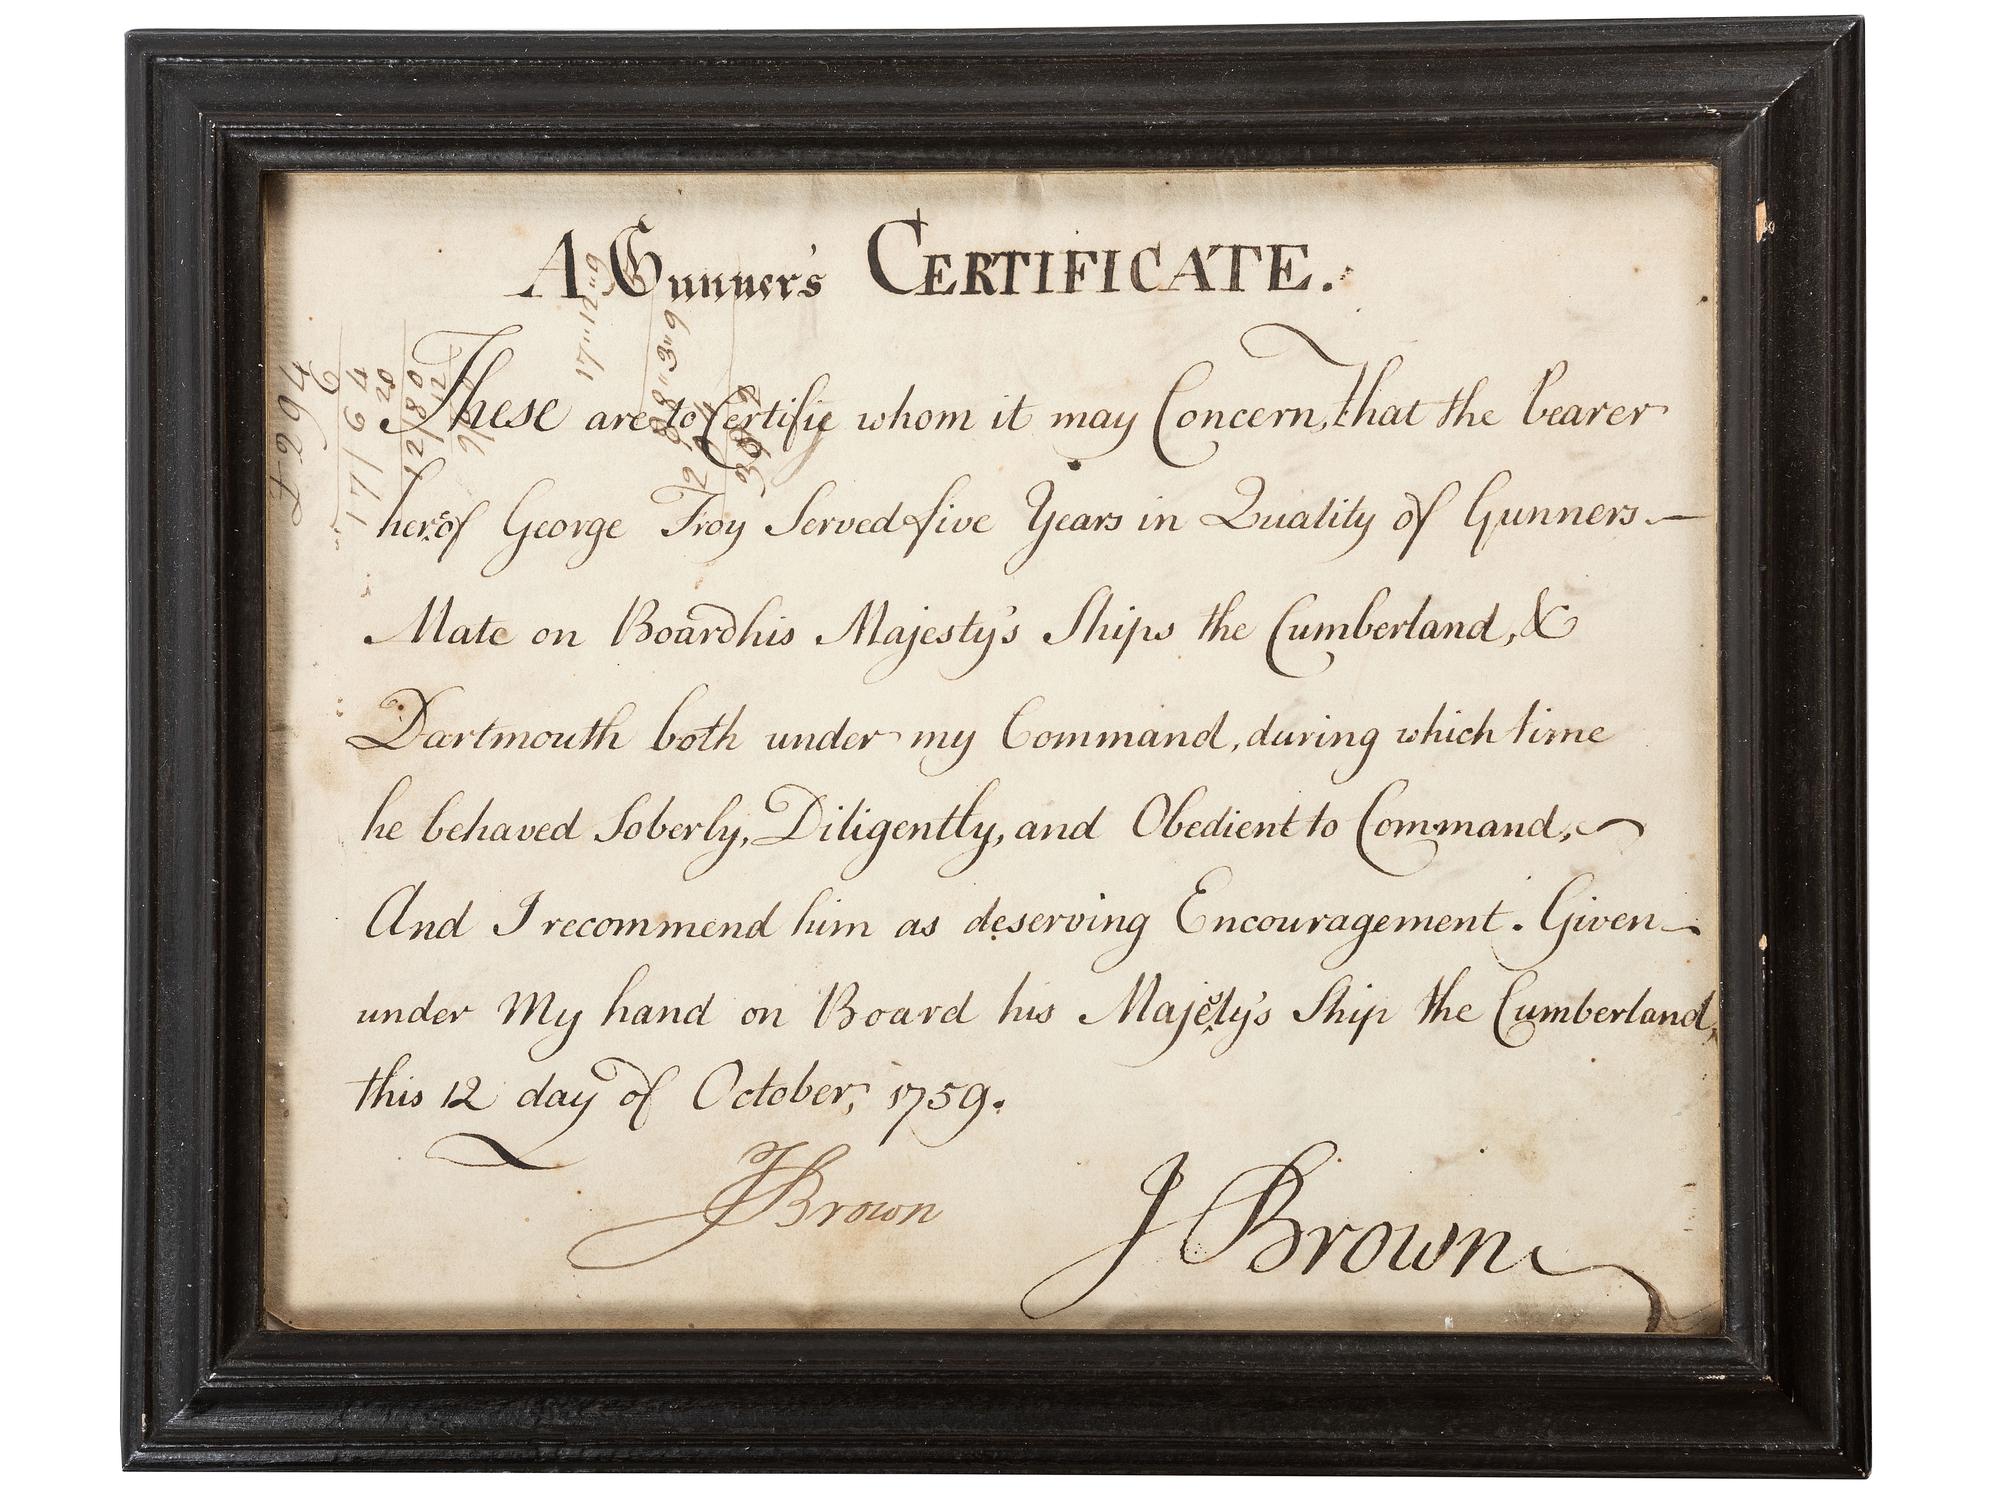 A Gunner's CERTIFICATE.
These are to Certifie whom it may Concern, that the bearer
hereof George Troy Served five Years in Quality of Gunners
Mate on Board his Majesty's Ships the Cumberland, &
Dartmouth both under my Command, during which time
he behaved Soberly, Diligently, and Obedient to Command,
And I recommend him as deserving Encouragement. Given
under My hand on Board his Majesty's Ship the Cumberland,
this 12 day of October, 1759.
J Brown
J Brown
17"12"9
£294